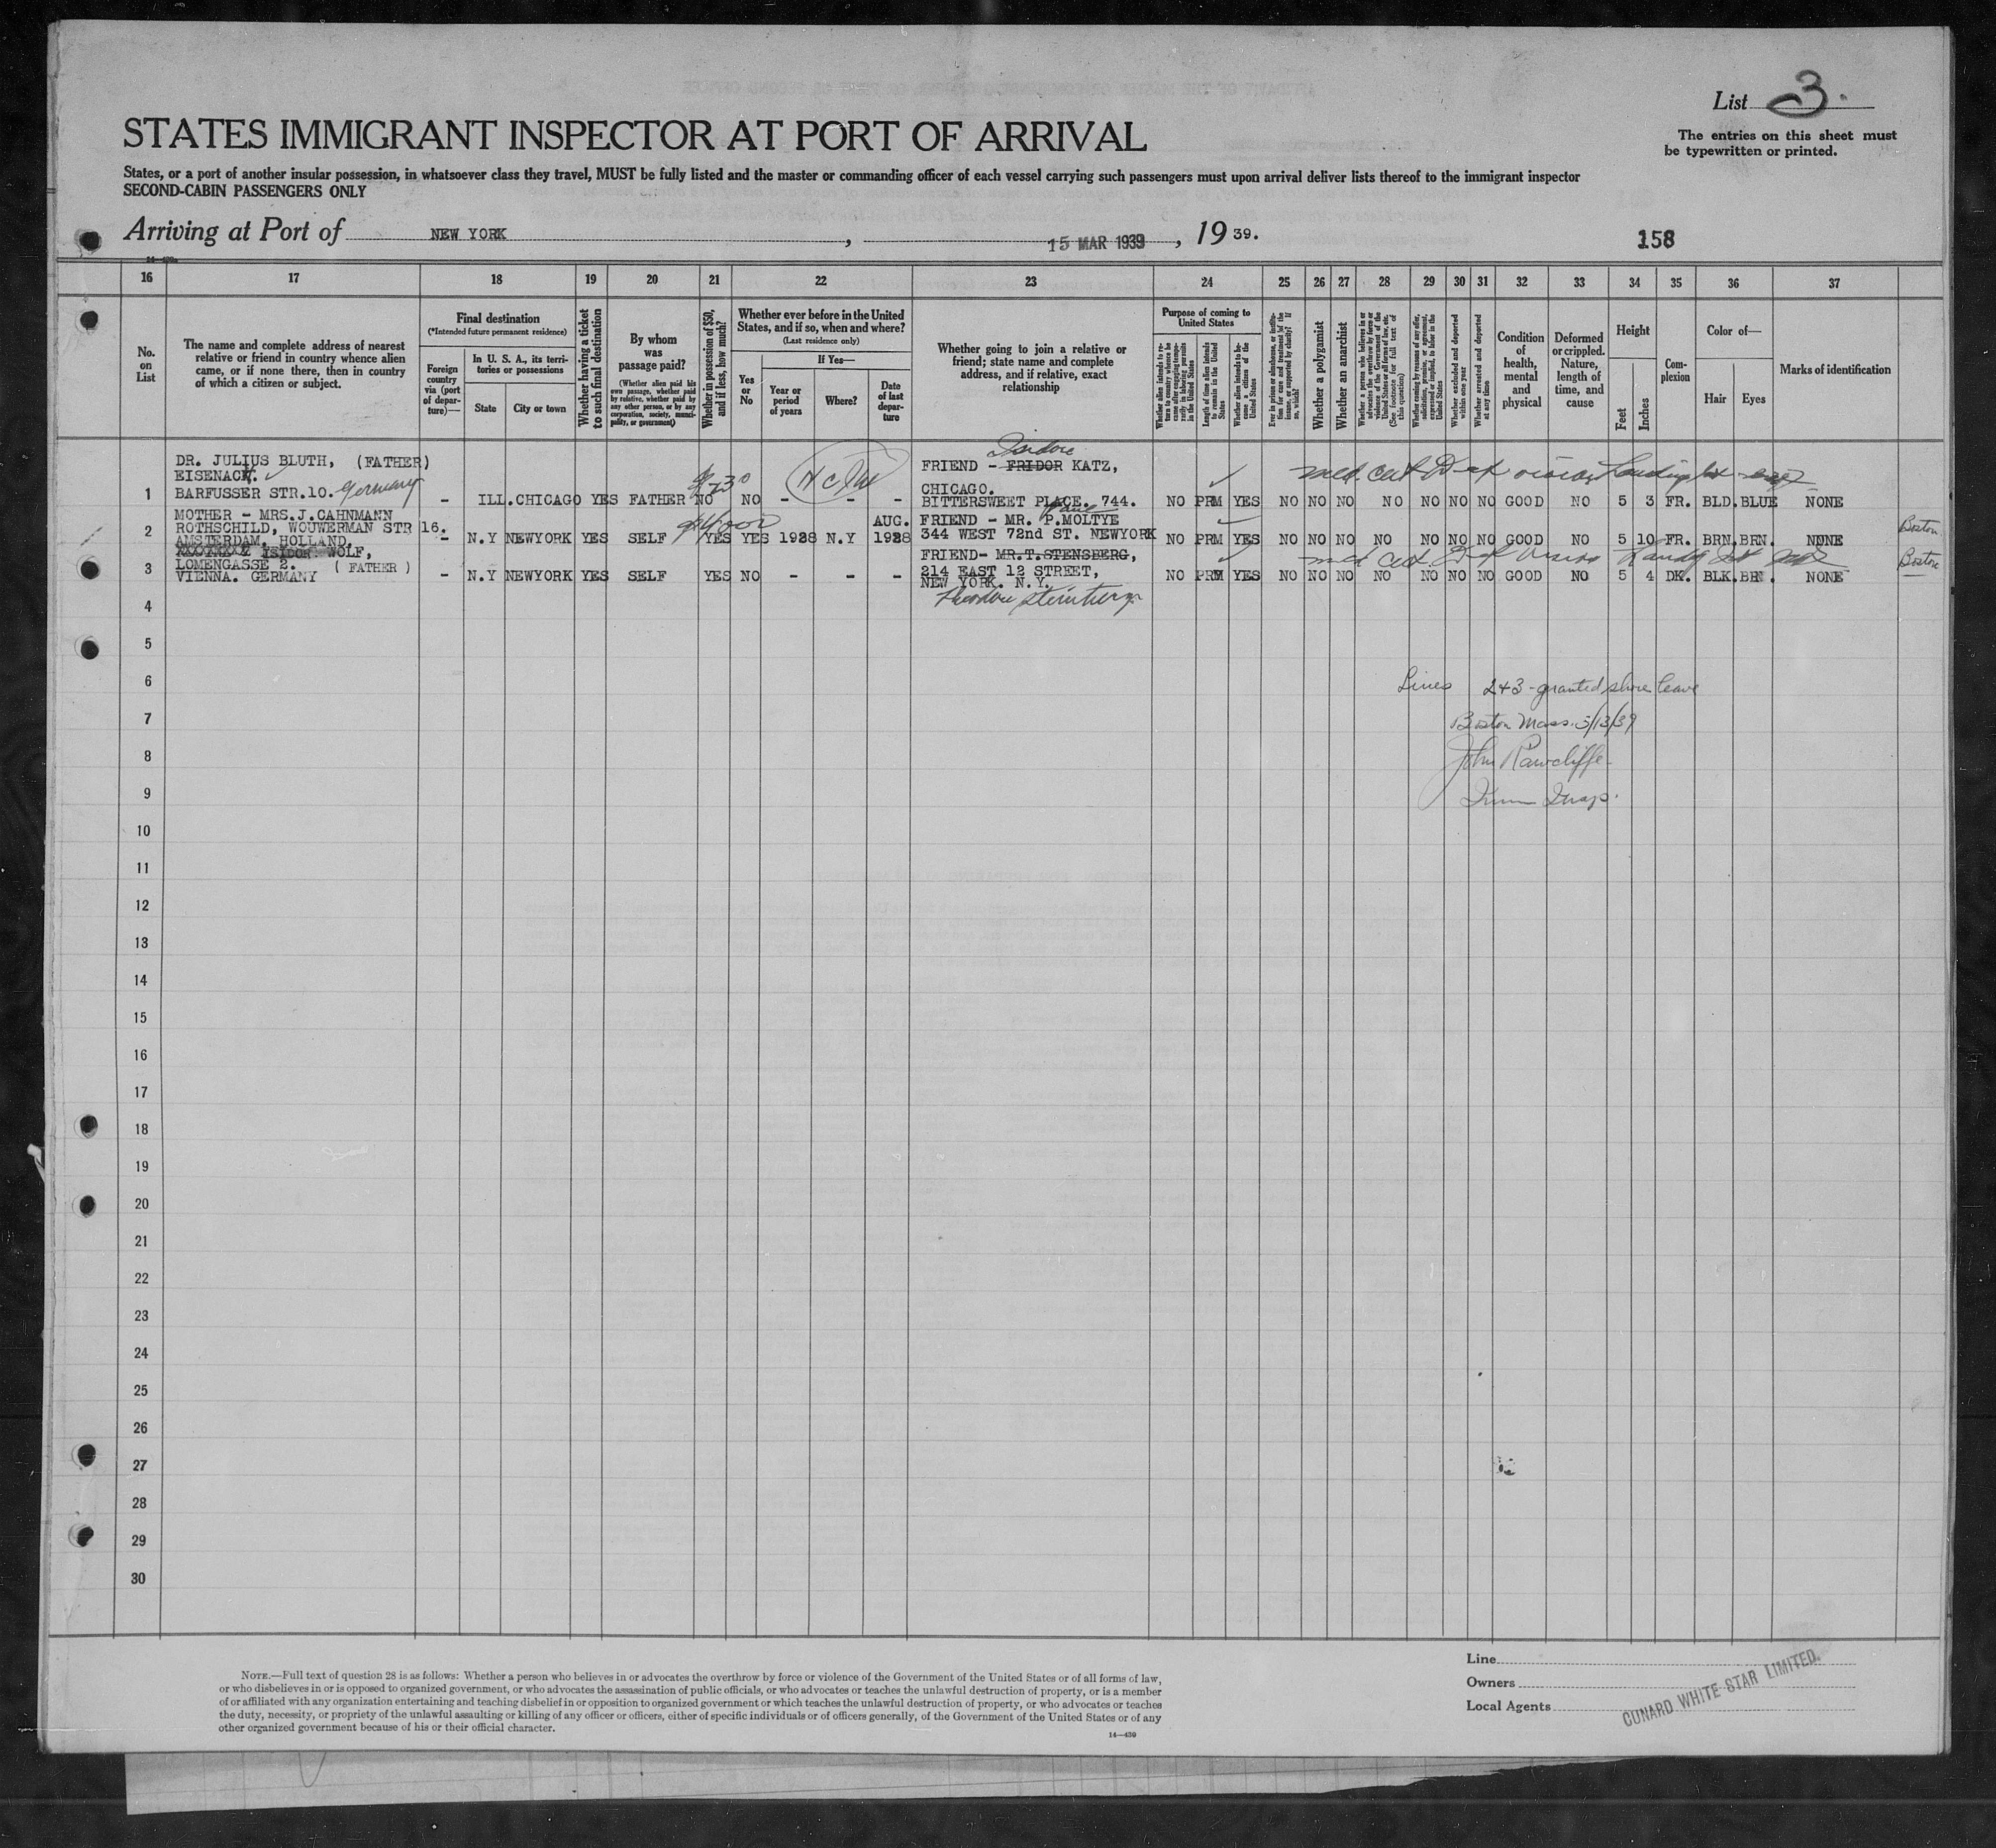 List 3.
The entries on this sheet must
be typewritten or printed.
STATES IMMIGRANT INSPECTOR AT PORT OF ARRIVAL
States, or a port of another insular possession, in whatsoever class they travel, MUST be fully listed and the master or commanding officer of each vessel carrying such passengers must upon arrival deliver lists thereof to the immigrant inspector
SECOND-CABIN PASSENGERS ONLY
Arriving at Port of NEW YORK, 15 MAR 1939, 19 39.
158
16 17 18 19 20 21 22 23 24 25 26 27 28 29 30 31 32 33 34 35 36 37
No. on List
The name and complete address of nearest
relative or friend in country whence alien
came, or if none there, then in country
of which a citizen or subject.
Final destination
(*Intended future permanent residence)
Foreign country via (port of departure)—
In U. S. A., its territories or possessions
State
City or town
Whether having a ticket to such final destination
By whom was passage paid?
(Whether alien paid his own passage, whether paid by relative, whether paid by any other person, or by any corporation, society, municipality, or government)
Whether in possession of $50, and if less, how much?
Whether ever before in the United
States, and if so, when and where?
(Last residence only)
Yes or No
If Yes—
Year or period of years
Where?
Date of last departure
Whether going to join a relative or
friend; state name and complete
address, and if relative, exact
relationship
Purpose of coming to United States
Whether alien intends to return to country whence he came after engaging temporarily in laboring pursuits in the United States
Length of time alien intends to remain in the United States
Whether alien intends to become a citizen of the United States
Ever in prison or almshouse, or institution for care and treatment of the insane, or supported by charity? If so, which?
Whether a polygamist
Whether an anarchist
Whether a person who believes in or advocates the overthrow by force or violence of the Government of the United States or all forms of law, etc. (See footnote for full text of this question)
Whether coming by reason of any offer, solicitation, promise, or agreement, expressed or implied, to labor in the United States
Whether excluded and deported within one year
Whether arrested and deported at any time
Condition of health, mental and physical
Deformed or crippled. Nature, length of time, and cause
Height
Feet
Inches
Complexion
Color of—
Hair
Eyes
Marks of identification
DR. JULIUS BLUTH, (FATHER)
EISENACK.
1 BARFUSSER STR.10. Germany - ILL. CHICAGO YES FATHER NO NO - - -
Isidore
FRIEND - FRIDOR KATZ,
CHICAGO.
BITTERSWEET PLACE. 744. NO PRM YES NO NO NO NO NO NO NO GOOD NO 5 3 FR. BLD. BLUE NONE
MOTHER - MRS.J.CAHNMANN
2 ROTHSCHILD, WOUWERMAN STR 16.
AMSTERDAM. HOLLAND. - N.Y NEWYORK YES SELF YES YES 1928 N.Y AUG. 1928
FRIEND - MR. P.MOLTYE
344 WEST 72nd ST. NEWYORK NO PRM YES NO NO NO NO NO NO NO GOOD NO 5 10 FR. BRN. BRN. NONE Boston
ISIDOR WOLF,
3 LOMENGASSE 2. (FATHER)
VIENNA. GERMANY - N.Y NEWYORK YES SELF YES NO - - -
FRIEND- MR.T.STENSBERG,
214 EAST 12 STREET,
NEW YORK. N.Y. NO PRM YES NO NO NO NO NO NO NO GOOD NO 5 4 DK. BLK. BRN. NONE Boston
Theodore Steinberg
4
5
6
Lines 2+3 - granted shore leave
7
Boston Mass. 3/13/39
8
John Rawcliffe
9
10
11
12
13
14
15
16
17
18
19
20
21
22
23
24
25
26
27
28
29
30
NOTE.—Full text of question 28 is as follows: Whether a person who believes in or advocates the overthrow by force or violence of the Government of the United States or of all forms of law,
or who disbelieves in or is opposed to organized government, or who advocates the assassination of public officials, or who advocates or teaches the unlawful destruction of property, or is a member
of or affiliated with any organization entertaining and teaching disbelief in or opposition to organized government or which teaches the unlawful destruction of property, or who advocates or teaches
the duty, necessity, or propriety of the unlawful assaulting or killing of any officer or officers, either of specific individuals or of officers generally, of the Government of the United States or of any
other organized government because of his or their official character.
14—430
Line
Owners
Local Agents
CUNARD WHITE STAR LIMITED.